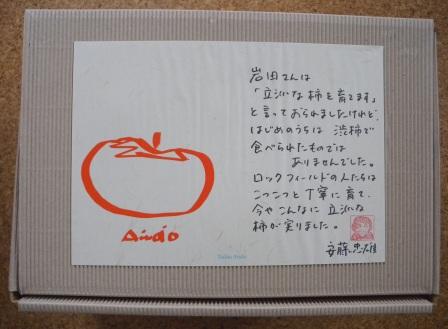 岩田さんは
「立派な柿を育てます」
と言っておられましたけれど、
はじめのうちは 渋柿で
食べられたものでは
ありませんでした。
ロックフィールドの人たちは
こつこつと丁寧に育て、
今やこんなに 立派な
柿が実りました。
安藤忠雄
Ando
Tadao Ando